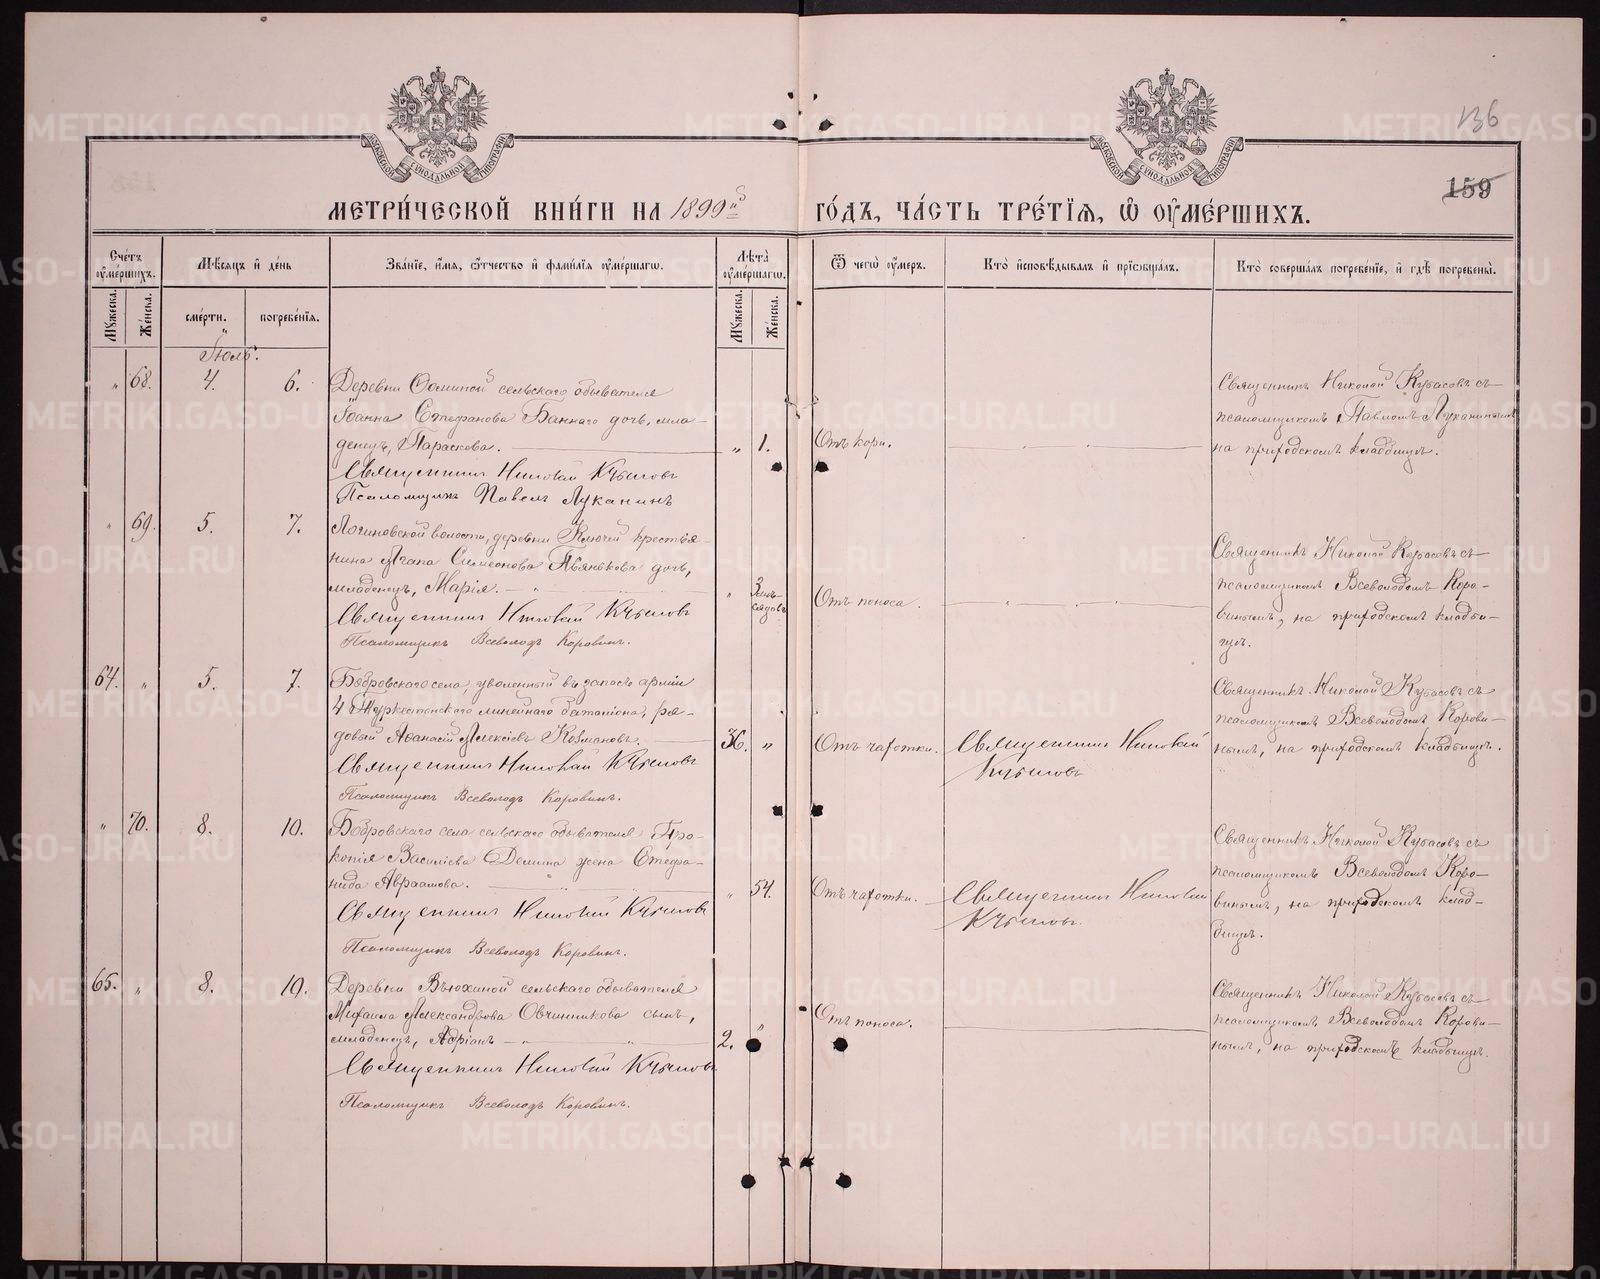 136
159
МЕТРИ́ЧЕСКОЙ КНИ́ГИ НА 1899й ГО́ДЪ, ЧА́СТЬ ТРЕ́ТІѦ, Ѡ҆ ОУ҆МЕ́РШИХЪ.
Сче́тъ оу҆ме́ршихъ.
Мѣ́сѧцъ и҆ де́нь
Зва́ніе, и҆́мѧ, ѻ҆́тчество и҆ фами́лїѧ оу҆ме́ршагѡ.
Лѣ́та оу҆ме́ршагѡ.
Ѿ чегѡ̀ оу҆́меръ.
Кто̀ и҆сповѣ́дывалъ и҆ прїѡбща́лъ.
Кто̀ соверша́лъ погребе́нїе, и҆ гдѣ̀ погребены̀.
Мꙋ́жеска.
Же́нска.
сме́рти.
погребе́нїѧ.
Мꙋ́жеска.
Же́нска.
Іюль.
" 68. 4. 6. Деревни Ѳоминой сельскаго обывателя
Іоанна Стефанова Баннаго дочь, мла-
денецъ, Параскова. " 1.
Священникъ Николай Кубасовъ
Псаломщикъ Павелъ Луканинъ
Отъ кори.
Священникъ Николай Кубасовъ съ
псаломщикомъ Павломъ Луканинымъ
на приходскомъ кладбищѣ.
" 69. 5. 7. Логиновской волости, деревни Ключей крестья-
нина Агапа Симеонова Пьянькова дочь,
младенецъ, Марія. "
Священникъ Николай Кубасовъ
Псаломщикъ Всеволодъ Коровинъ.
Отъ поноса.
Священникъ Николай Кубасовъ съ
псаломщикомъ Всеволодомъ Коро-
винымъ, на приходскомъ кладби-
щѣ.
64. " 5. 7. Бобровскаго села, уволенный въ запасъ арміи
4 Туркестанскаго линейнаго баталіона, ря-
довый Аѳанасій Алексіевъ Козмановъ. 36. "
Священникъ Николай Кубасовъ
Псаломщикъ Всеволодъ Коровинъ.
Отъ чахотки.
Священникъ Николай
Кубасовъ
Священникъ Николай Кубасовъ съ
псаломщикомъ Всеволодомъ Корови-
нымъ, на приходскомъ кладбищѣ.
" 70. 8. 10. Бобровскаго села сельскаго обывателя Про-
копія Василіева Демина жена Стефа-
нида Авраамова. " 54.
Священникъ Николай Кубасовъ
Псаломщикъ Всеволодъ Коровинъ.
Отъ чахотки.
Священникъ Николай
Кубасовъ.
Священникъ Николай Кубасовъ съ
псаломщикомъ Всеволодомъ Коро-
винымъ, на приходскомъ клад-
бищѣ.
65. " 8. 10. Деревни Вьюхиной сельскаго обывателя
Михаила Александрова Овчинникова сынъ,
младенецъ, Адріанъ 2. "
Священникъ Николай Кубасовъ
Псаломщикъ Всеволодъ Коровинъ.
Отъ поноса.
Священникъ Николай Кубасовъ съ
псаломщикомъ Всеволодомъ Корови-
нымъ, на приходскомъ кладбищѣ.
METRIKI.GASO-URAL.RU